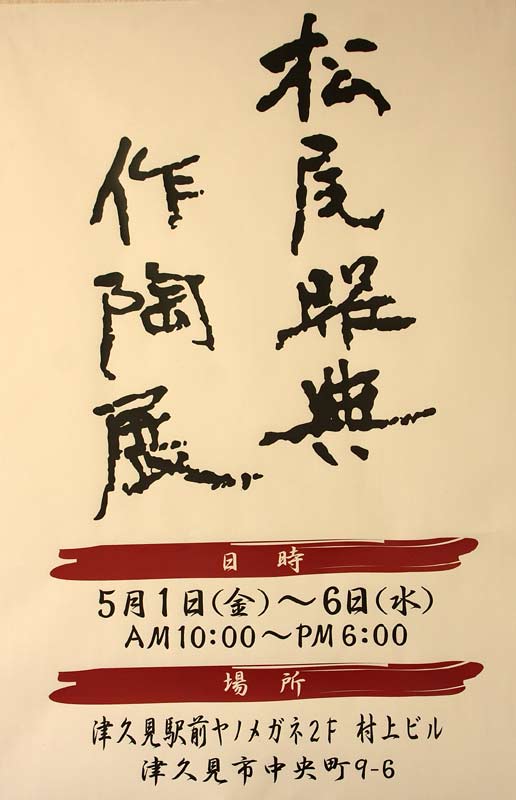 松尾照典
作陶展
日時
5月1日(金)～6日(水)
AM10:00～PM6:00
場所
津久見駅前ヤノメガネ2F 村上ビル
津久見市中央町9-6